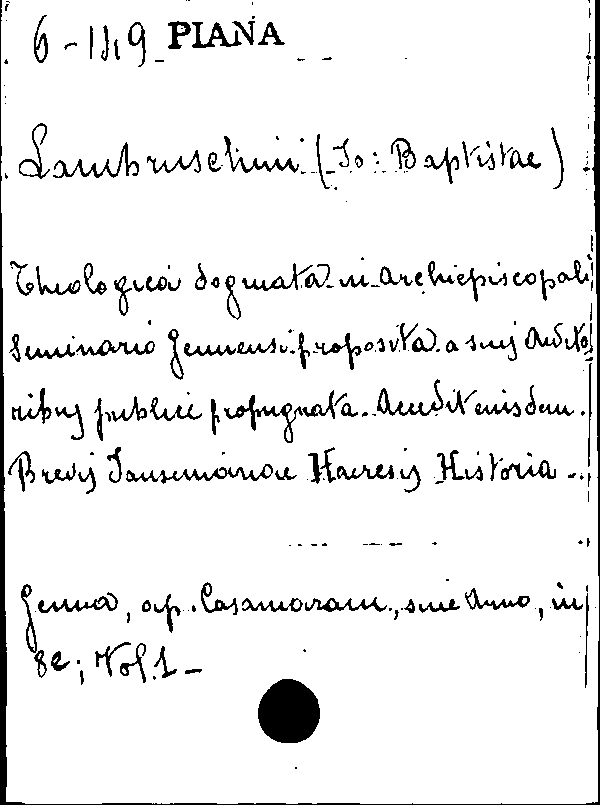 6-149 PIANA
Lambruschini (Jo: Baptistae)
Theologica dogmata in Archiepiscopali
Seminario Genuensi proposita a suis Audito
ribus publice propugnata. Accedit eiusdem.
Brevis Jansenianae Haeresis Historia -
Genua, ap. Casamaram, sine Anno, in
8e; Vol. 1 -